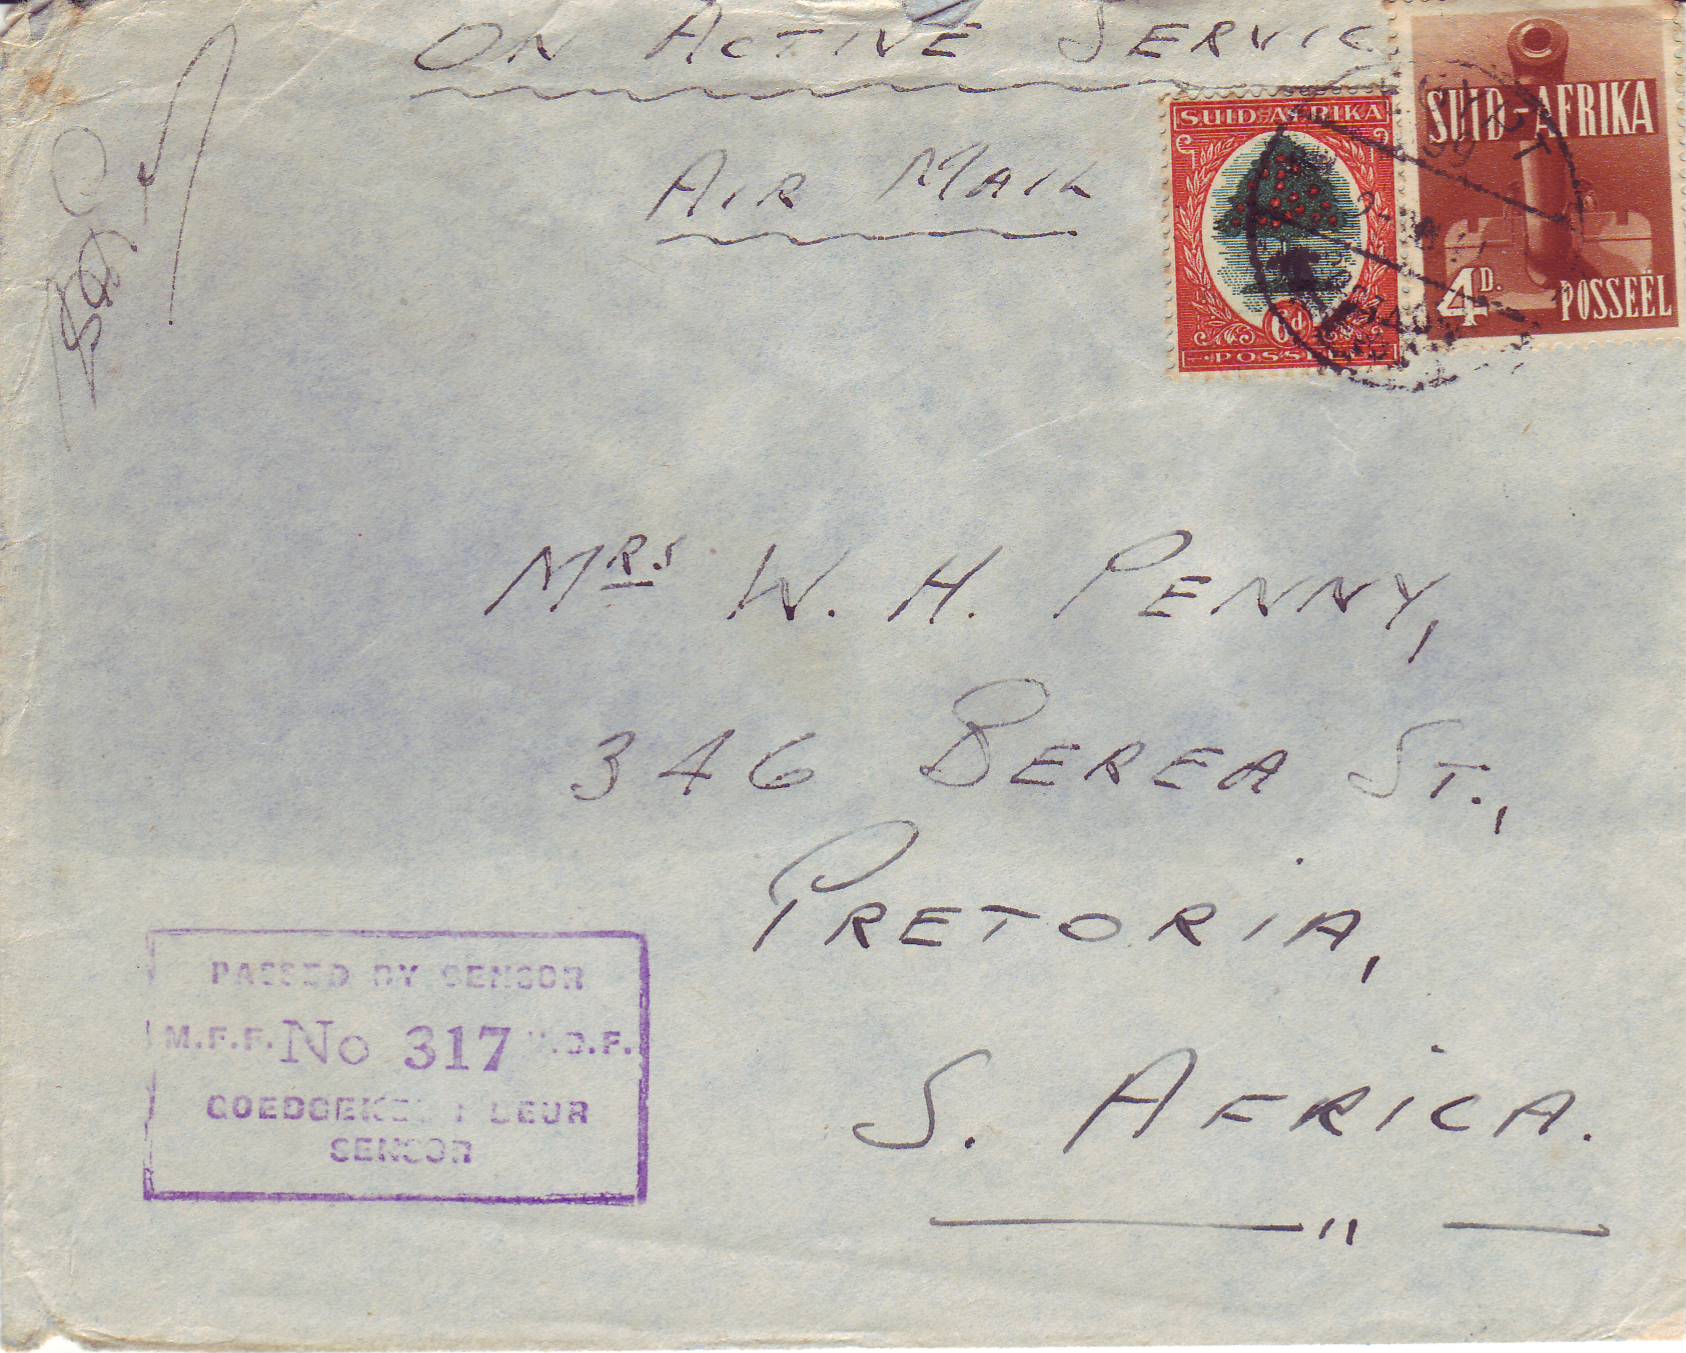 ON ACTIVE SERVIC
AIR MAIL
SUID-AFRIKA
6d
SUID-AFRIKA
4D. POSSEËL
MRS W. H. PENNY,
346 BEREA ST.,
PRETORIA,
S. AFRICA.
PASSED BY SENSOR
M.F.F. No 317 .D.F.
DEUR
SENSOR